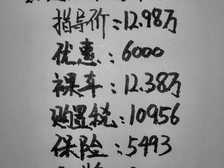 指导价:12.98万
优惠:6000
裸车:12.38万
购置税:10956
保险:5493